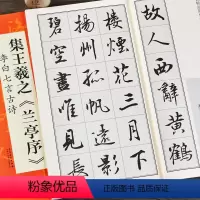 故人西辭黄鶴
樓煙花三月下
揚州孤帆遠影
碧空盡惟見長
集王羲之《兰亭序》
李白七言古诗
粉象优品